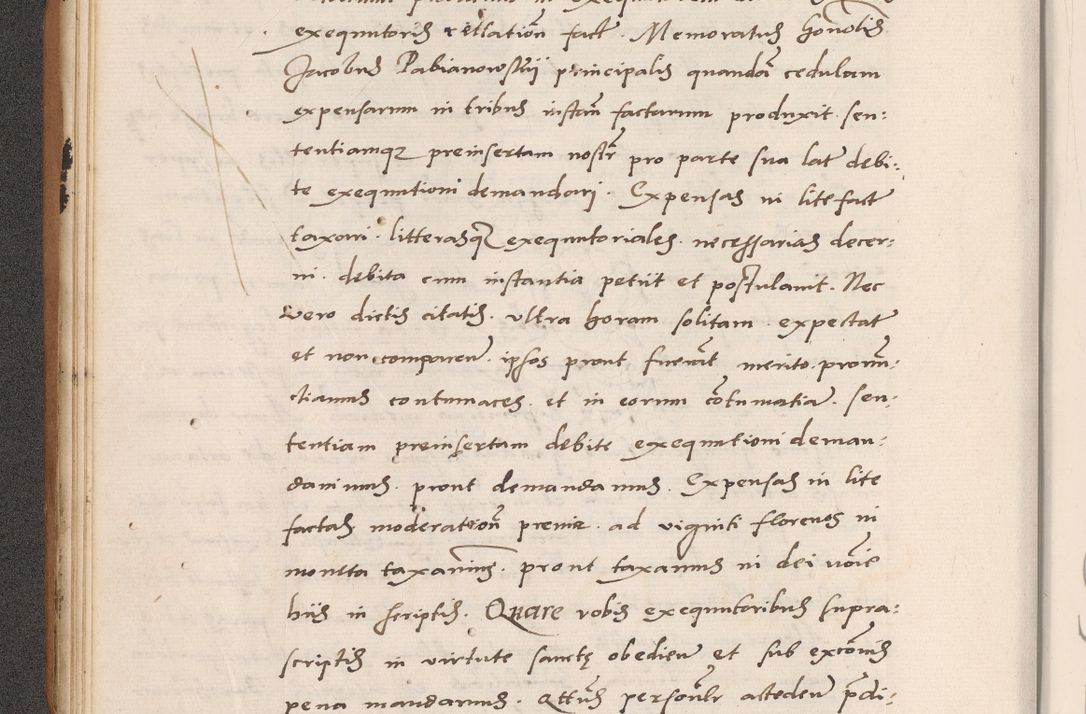 exequutoris rellation fact. Memoratus honobilis
Jacobus Pabianowskii principalis quandam cedulam
expensarum in tribus instan factarum produxit. sen:
tentiamqz preinsertam nostr pro parte sua lat debi:
te exequutioni demandari. Expensas in lite fact
taxari. litterasqz exequutoriales. necessarias decer:
ni. debita cum instantia petiit et postulavit. Nec
vero dictis citatis. ultra horam solitam. expectat
et non comparen. ipsos prout fuerat merito. pronun:
ctiamus contumaces. et in eorum contumatia. sen:
tentiam preinsertam debite exequutioni deman:
davimus. prout demandamus. Expensas in lite
factas moderation previa. ad viginti florenos in
monetta taxavimus. prout taxamus in dei noie
hiis in scriptis. Quare vobis exequutoribus supra:
scriptis in virtute sancte obedien et sub excomis
pena mandamus. Qttus personlr acteden pdi: